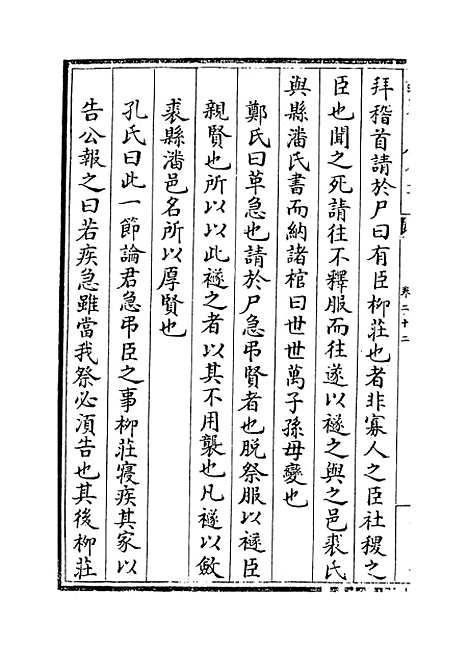 卷二十二
拜稽首請於尸曰有臣柳莊也者非寡人之臣社稷之
臣也聞之死請往不釋服而往遂以襚之與之邑裘氏
與縣潘氏書而納諸棺曰世世萬子孫毋變也
鄭氏曰革急也請於尸急弔賢者也脱祭服以襚臣
親賢也所以以此襚之者以其不用襲也凡襚以斂
裘縣潘邑名所以厚賢也
孔氏曰此一節論君急弔臣之事柳莊寢疾其家以
告公報之曰若疾急雖當我祭必湏告也其後柳莊